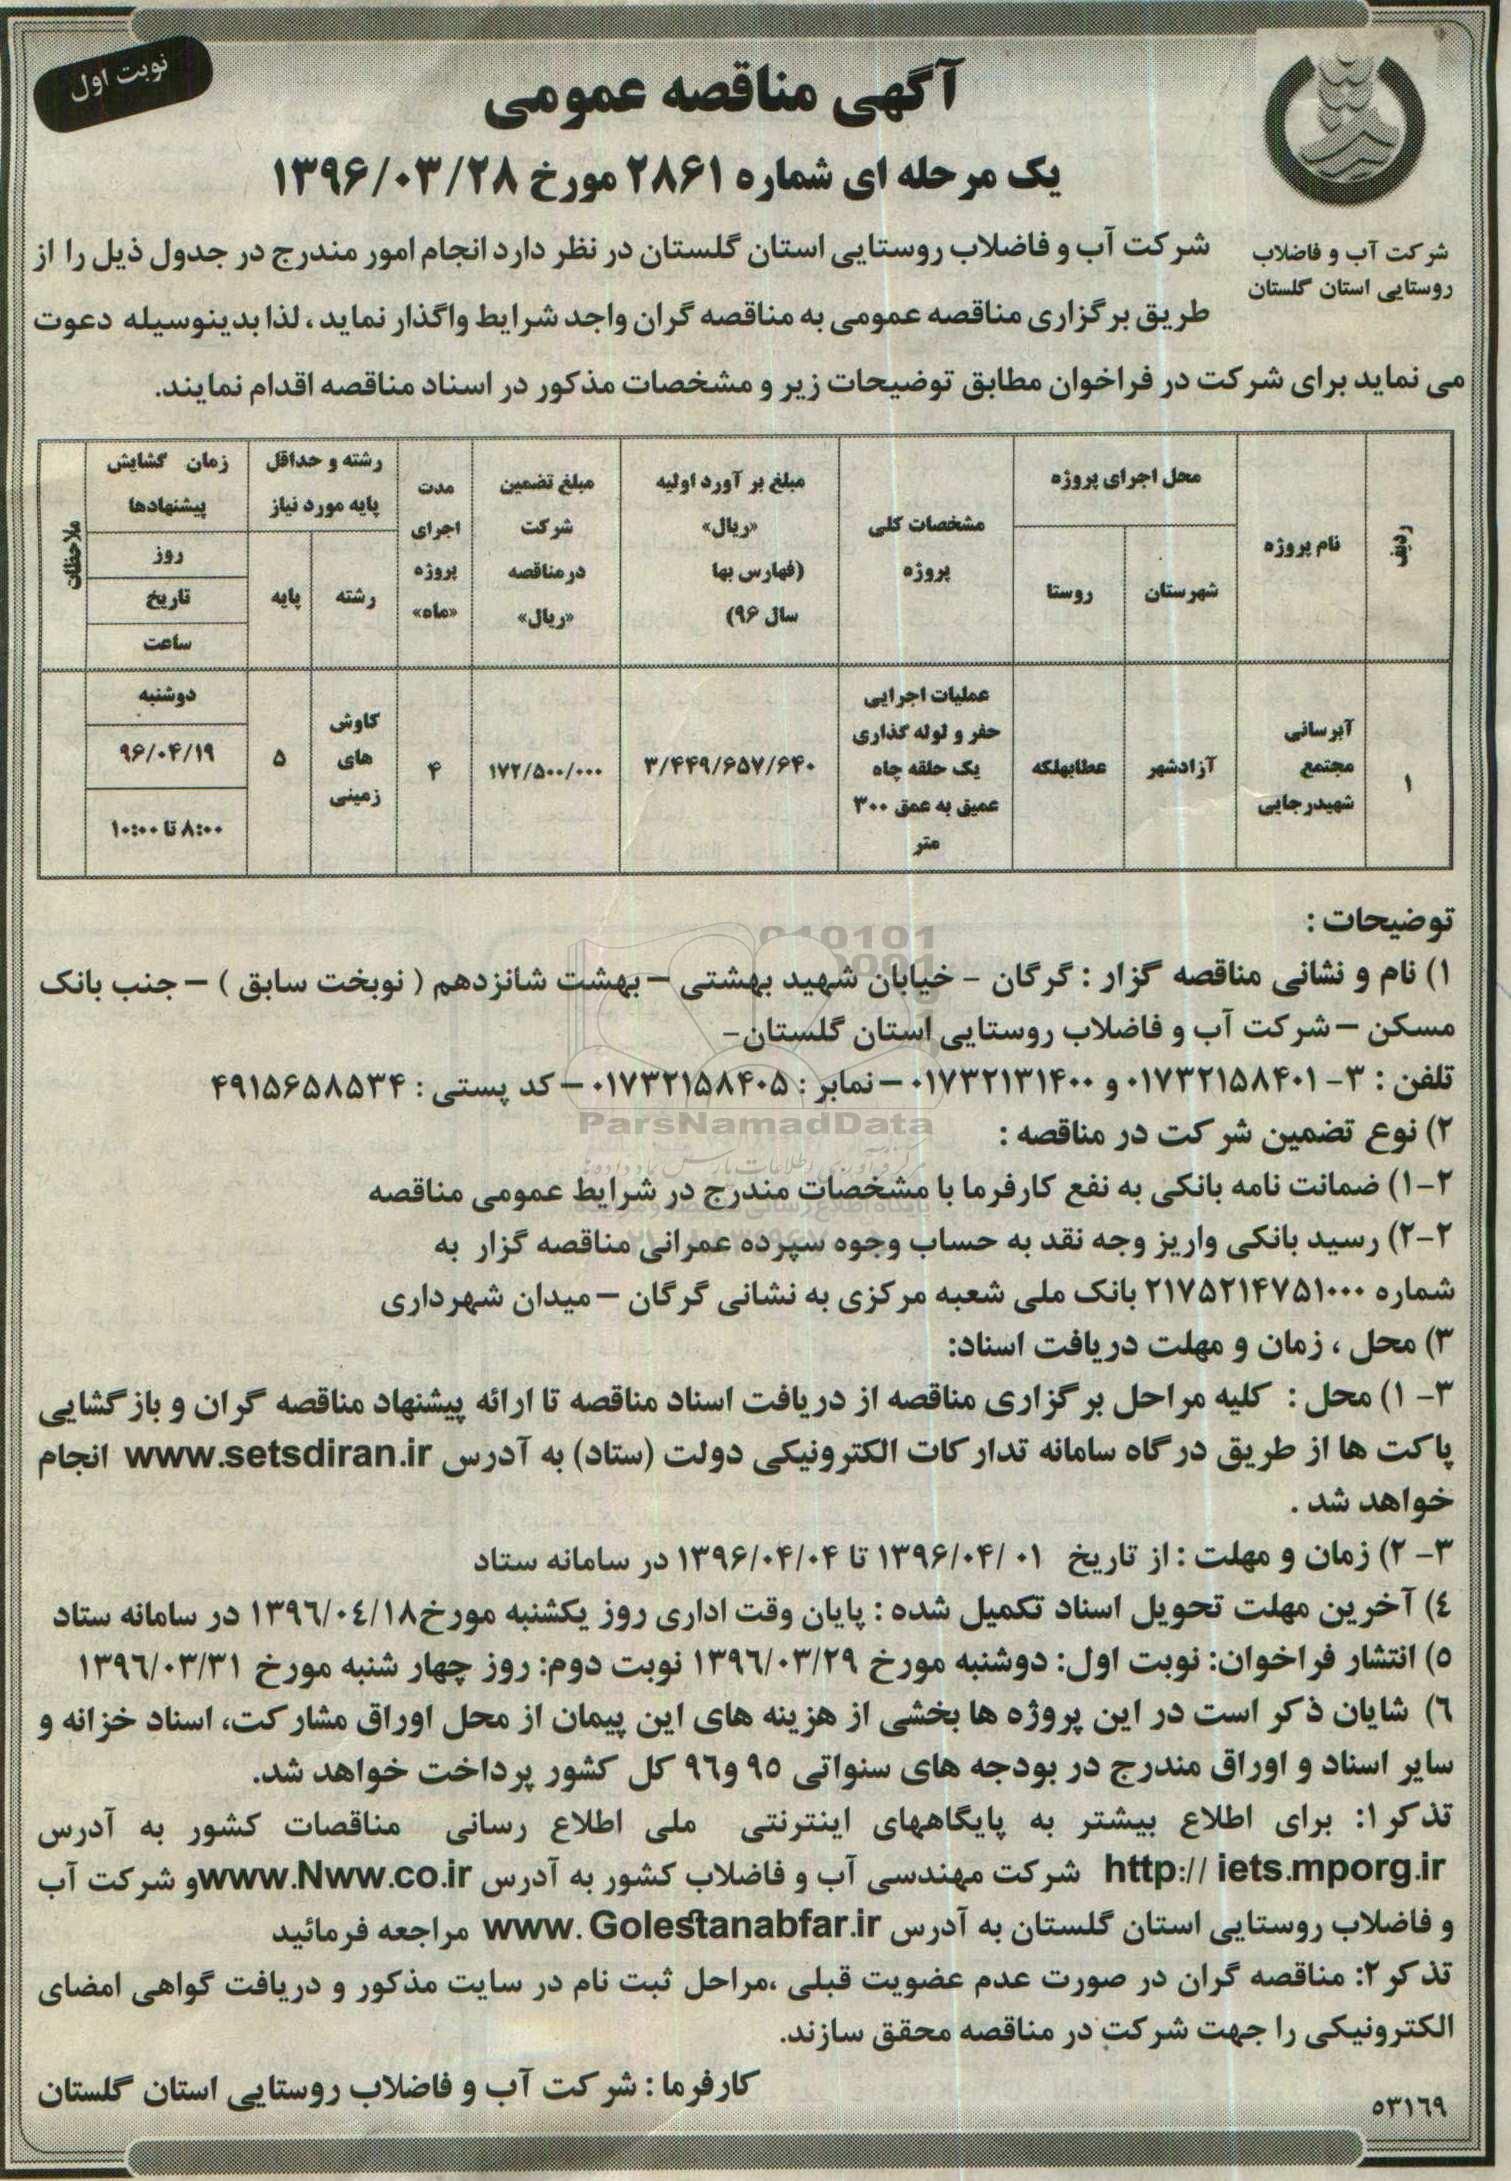 نوبت اول
آگهی مناقصه عمومی
یک مرحله ای شماره ۲۸۶۱ مورخ ۱۳۹۶/۰۳/۲۸
شرکت آب و فاضلاب
روستایی استان گلستان
شرکت آب و فاضلاب روستایی استان گلستان در نظر دارد انجام امور مندرج در جدول ذیل را از
طریق برگزاری مناقصه عمومی به مناقصه گران واجد شرایط واگذار نماید، لذا بدینوسیله دعوت
می نماید برای شرکت در فراخوان مطابق توضیحات زیر و مشخصات مذکور در اسناد مناقصه اقدام نمایند.
ردیف
نام پروژه
محل اجرای پروژه
شهرستان
روستا
مشخصات کلی
پروژه
مبلغ بر آورد اولیه
«ریال»
(فهارس بها
سال ۹۶)
مبلغ تضمین
شرکت
در مناقصه
«ریال»
مدت
اجرای
پروژه
«ماه»
رشته و حداقل
پایه مورد نیاز
رشته
پایه
زمان گشایش
پیشنهادها
روز
تاریخ
ساعت
ملاحظات
۱
آبرسانی
مجتمع
شهیدرجایی
آزادشهر
عطابهلکه
عملیات اجرایی
حفر و لوله گذاری
یک حلقه چاه
عمیق به عمق ۳۰۰
متر
۳/۴۴۹/۶۵۷/۶۴۰
۱۷۲/۵۰۰/۰۰۰
۴
کاوش
های
زمینی
۵
دوشنبه
۹۶/۰۴/۱۹
۸:۰۰ تا ۱۰:۰۰
توضیحات :
۱) نام و نشانی مناقصه گزار : گرگان - خیابان شهید بهشتی – بهشت شانزدهم ( نوبخت سابق ) – جنب بانک
مسکن – شرکت آب و فاضلاب روستایی استان گلستان-
تلفن : ۳- ۰۱۷۳۲۱۵۸۴۰۱ و ۰۱۷۳۲۱۳۱۴۰۰ – نمابر : ۰۱۷۳۲۱۵۸۴۰۵ – کد پستی : ۴۹۱۵۶۵۸۵۳۴
ParsNamadData
۲) نوع تضمین شرکت در مناقصه :
۲-۱) ضمانت نامه بانکی به نفع کارفرما با مشخصات مندرج در شرایط عمومی مناقصه
۲-۲) رسید بانکی واریز وجه نقد به حساب وجوه سپرده عمرانی مناقصه گزار به
شماره ۲۱۷۵۲۱۴۷۵۱۰۰۰ بانک ملی شعبه مرکزی به نشانی گرگان – میدان شهرداری
۳) محل ، زمان و مهلت دریافت اسناد:
۳- ۱) محل : کلیه مراحل برگزاری مناقصه از دریافت اسناد مناقصه تا ارائه پیشنهاد مناقصه گران و بازگشایی
پاکت ها از طریق درگاه سامانه تدارکات الکترونیکی دولت (ستاد) به آدرس www.setsdiran.ir انجام
خواهد شد .
۳- ۲) زمان و مهلت : از تاریخ ۰۱ /۱۳۹۶/۰۴ تا ۱۳۹۶/۰۴/۰۴ در سامانه ستاد
٤) آخرین مهلت تحویل اسناد تکمیل شده : پایان وقت اداری روز یکشنبه مورخ۱۳۹٦/۰٤/۱۸ در سامانه ستاد
٥) انتشار فراخوان: نوبت اول: دوشنبه مورخ ۱۳۹٦/۰۳/۲۹ نوبت دوم: روز چهار شنبه مورخ ۱۳۹٦/۰۳/۳۱
٦) شایان ذکر است در این پروژه ها بخشی از هزینه های این پیمان از محل اوراق مشارکت، اسناد خزانه و
سایر اسناد و اوراق مندرج در بودجه های سنواتی ۹٥ و۹٦ کل کشور پرداخت خواهد شد.
تذکر۱: برای اطلاع بیشتر به پایگاههای اینترنتی ملی اطلاع رسانی مناقصات کشور به آدرس
http:// iets.mporg.ir شرکت مهندسی آب و فاضلاب کشور به آدرس www.Nww.co.irو شرکت آب
و فاضلاب روستایی استان گلستان به آدرس www. Golestanabfar.ir مراجعه فرمائید
تذکر۲: مناقصه گران در صورت عدم عضویت قبلی ،مراحل ثبت نام در سایت مذکور و دریافت گواهی امضای
الکترونیکی را جهت شرکت در مناقصه محقق سازند.
کارفرما : شرکت آب و فاضلاب روستایی استان گلستان
٥۳۱٦۹